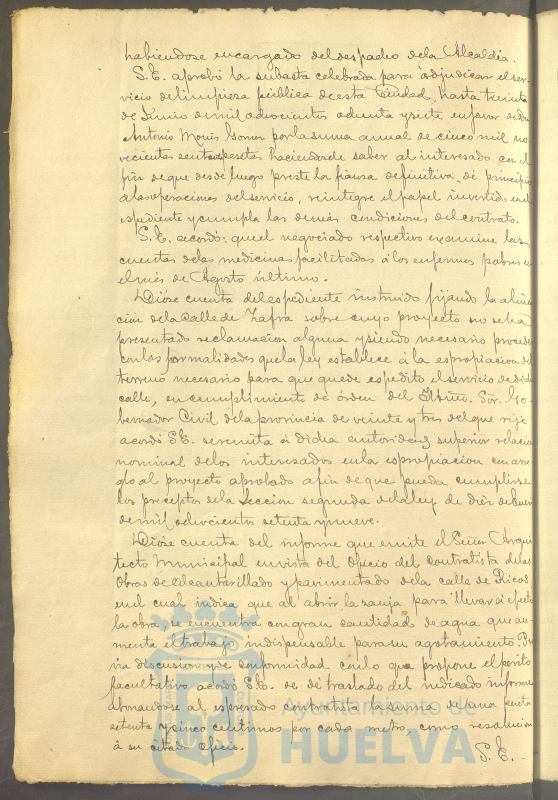 habiendose encargado del despacho dela Alcaldia.
S.E. aprobó la subasta celebrada para adjudicar el ser-
vicio de limpieza pública de esta Ciudad, hasta treinta
de Junio de mil ochocientos ochenta y siete en favor de Don
Antonio Monís Gomez por la suma anual de cinco mil no-
vecientas pesetas haciendosele saber al interesado con el
fin de que desde luego preste la fianza definitiva, dé principio
a las operaciones del servicio, reintegre el papel invertido en el
espediente y cumpla las demás condiciones del contrato.
S.E. acordó: que el negociado respectivo examine las
cuentas delas medicinas facilitadas á los enfermos pobres en
el mes de Agosto último.
Dióse cuenta del espediente instruido fijando la aline-
ación dela Calle de Zafra sobre cuyo proyecto no se ha
presentado reclamacion alguna y siendo necesario proceder
con las formalidades que la ley establece á la espropiacion del
terreno necesario para que quede espedito el servicio de dicha
calle, en cumplimiento de órden del Iltmo. Sor. Go-
bernador Civil dela provincia de veinte y tres del que rije
acordó S.E. se remita á dicha autoridad superior relacion
nominal delos interesados en la espropiacion con arre-
glo al proyecto aprobado a fin de que pueda cumplirse
los preceptos dela Seccion segunda dela ley de diez de Enero
de mil ochocientos setenta y nueve.
Dióse cuenta del informe que emite el Señor Arqui-
tecto Municipal en vista del Oficio del contratista delas
Obras de alcantarillado y pavimentado dela calle de Ricos
en el cual indica que al abrir la zanja para llevar á efecto
la obra se encuentra con gran cantidad de agua que au-
menta el trabajo indispensable para su agotamiento. Pré-
via discusion y de conformidad con lo que propone el perito
facultativo acordó S.E. se dé traslado del indicado informe
abonandose al espresado contratista la suma de una peseta
setenta y cinco centimos por cada metro, como resolucion
á su citado oficio.
S.E.-
Ayuntamiento de
HUELVA